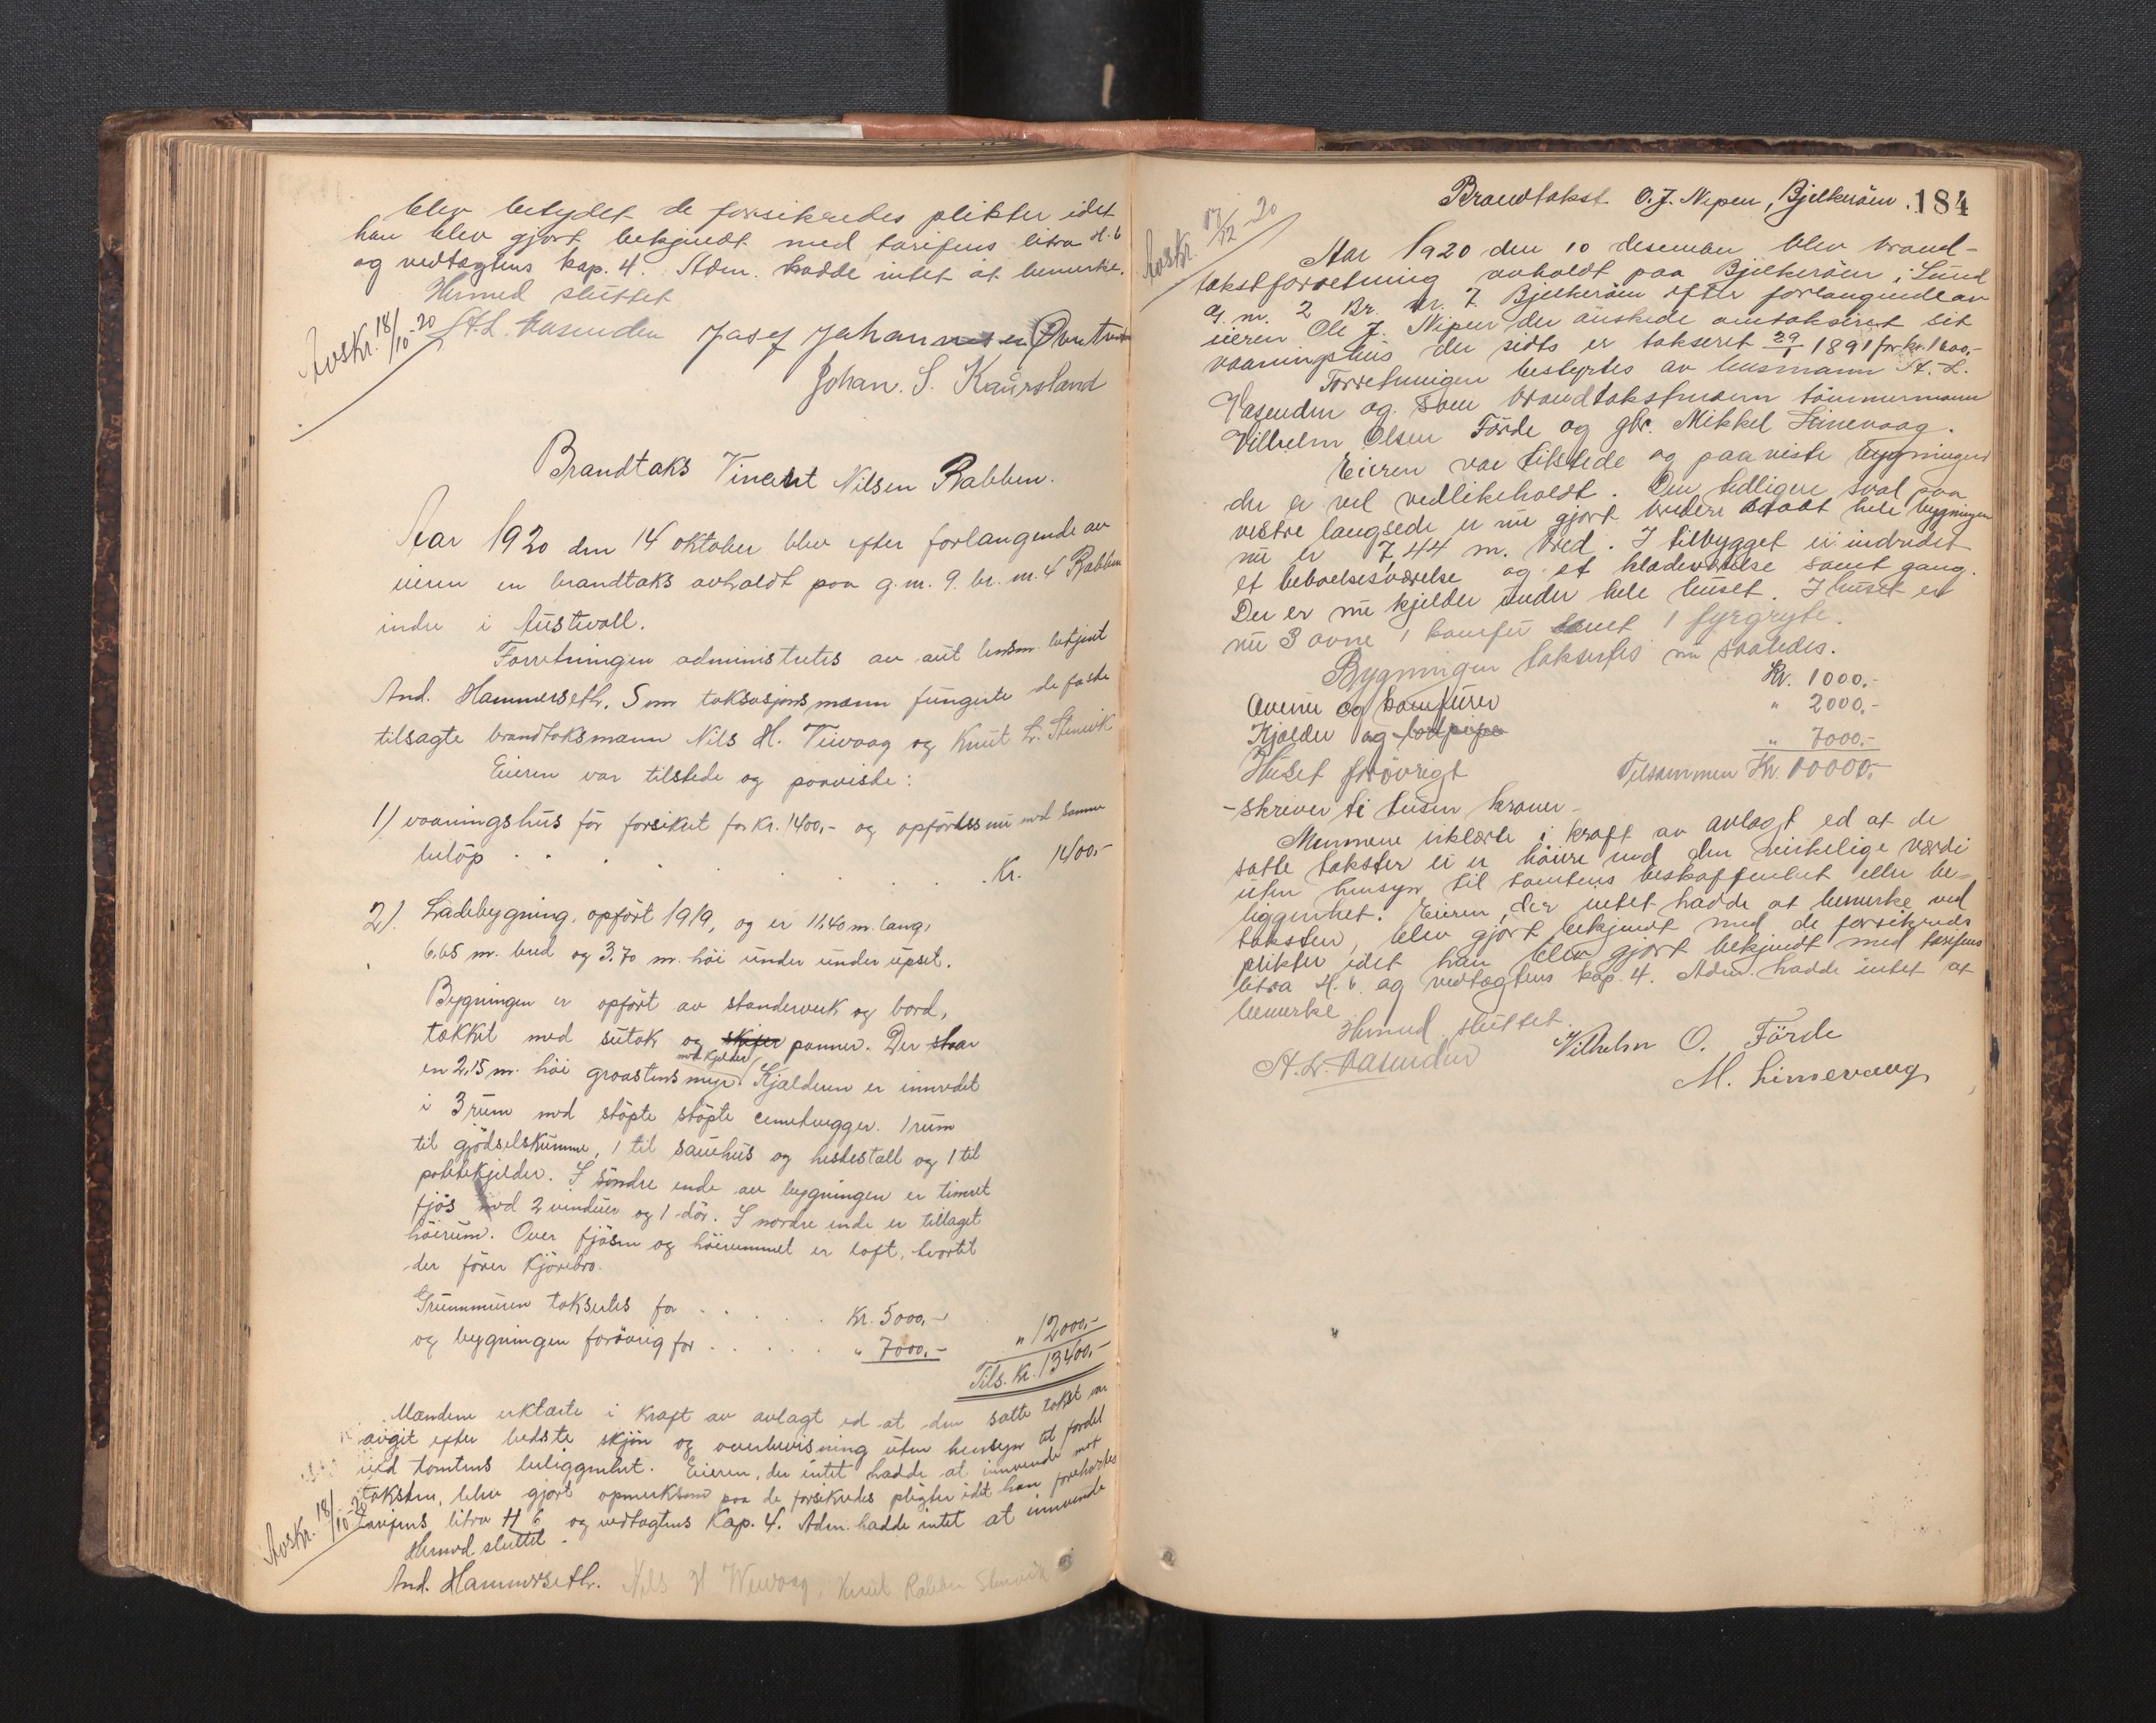 blev betydet de forsikredes plikter idet
han blev gjort bekjendt med tarifens litra H. 6
og vedtægtens kap. 4. Adm. hadde intet at bemerke.
Hermed sluttet
Avskr. 18/10-20
A. L. Vasenden Josef Johannesen
Johan. S. Kaursland
Brandtaks Vincent Nilsen Rabben.
Aar 1920 den 14 oktober blev efter forlangende av
eieren en brandtaks avholdt paa g.nr. 9. br. nr. 4 Rabben
indre i Austevoll.
Forretningen administertes av aut lensm. betjent
And. Hammerseth. Som taksasjonsmænn fungerte de faste
tilsagte brandtaksmænn Nils H. Vewaag og Knut L. Stenevik
Eieren var tilstede og paaviste:
1) vaaningshus før forsikret for Kr. 1400,- og opføres nu med samme
beløp . . . . . . . . Kr. 1400,-
2). Ladebygning, opført 1919, og er 11,40 m. lang,
6,65 m. bred og 3.70 m. høi under under upset.
Bygningen er opført av standerverk og bord,
tækket med sutak og skifer panner. Der staar
med kjelder
en 2,15 m. høi graastensmur. Kjælderen er innredet
i 3 rum med støpte støpte cementvegger. 1 rum
til gjødselskumme, 1 til sauehus og hestestall og 1 til
potetkjelder. I søndre ende av bygningen er timret
fjøs med 2 vinduer og 1 dør. I nordre ende er tillaget
høirum. Over fjøsen og høirummet er loft, hvortil
der fører kjørebro.
Grunnmuren takseres for . . . . . Kr. 5000,-
og bygningen forøvrig for . . . . . " 7000.- " 12000,-
Tils. Kr. 13400,-
Mændene erklærte i kraft av avlagt ed at den satte takst var
avgit efter bedste skjøn og overbevisning uten hensyn til fordel
ved tomtens beliggenhet. Eieren, der intet hadde at innvende mot
taksten, blev gjort opmerksom paa de forsikredes pligter idet han foreholdtes
Avskr. 18/10-20
tarifens litra H 6 og vedtægtens Kap. 4. Adm. hadde intet at innvende
Hermed sluttet.
And. Hammerseth. Nils H Wewaag. Knut Rabben Stenevik
Brandtakst O. J. Nepen, Bjelkerøen. 184
Avskr. 17/12-20
Aar 1920 den 10 desember blev brand-
takstforretning avholdt paa Bjelkerøen i Sund
g. nr. 2 Br. nr. 7. Bjelkerøen efter forlangende av
eieren Ole J. Nipen der ønskede omtakseret sit
vaaningshus der sidts er takseret 29/1 1891 for kr. 1600,-
Forretningen bestyrtes av lensmann A. L.
Vasenden og som brandtakstmænn tømmermann
Vilhelm Olsen Førde og gbr. Mikkel Limevaag.
Eieren var tilstede og paaviste bygningen
der er vel vedlikeholdt. Den tidligere sval paa
vestre langsede er nu gjort bredere saa at hele bygningen
nu er 7,44 m. bred. I tilbygget er indredet
et beboelsesværelse og et klædeværelse samt gang.
Der er nu kjelder under hele huset. I huset er
nu 3 ovne 1 komfur samt 1 fyrgryte.
Bygningen takseres nu saaledes.
Ovene og komfurer Kr. 1000,-
Kjælder og " 2000,-
Huset forøvrigt " 7000,-
Tilsammen Kr. 10000,-
- skriver ti tusen kroner -
Mennene erklærte i kraft av avlagt ed at de
satte takster ei er høiere end den virkelige værdi
uten hensyn til tomtens beskaffenhet eller be-
liggenhet. Eieren, der intet hadde at bemerke ved
taksten, blev gjort bekjendt med de forsikredes
plikter idet han blev gjort bekjendt med tarifens
litra H. 6 og vedtægtens kap. 4. Adm. hadde intet at
bemerke
Hermed sluttet.
A. L. Vasenden Vilhelm O. Førde
M. Limevaag